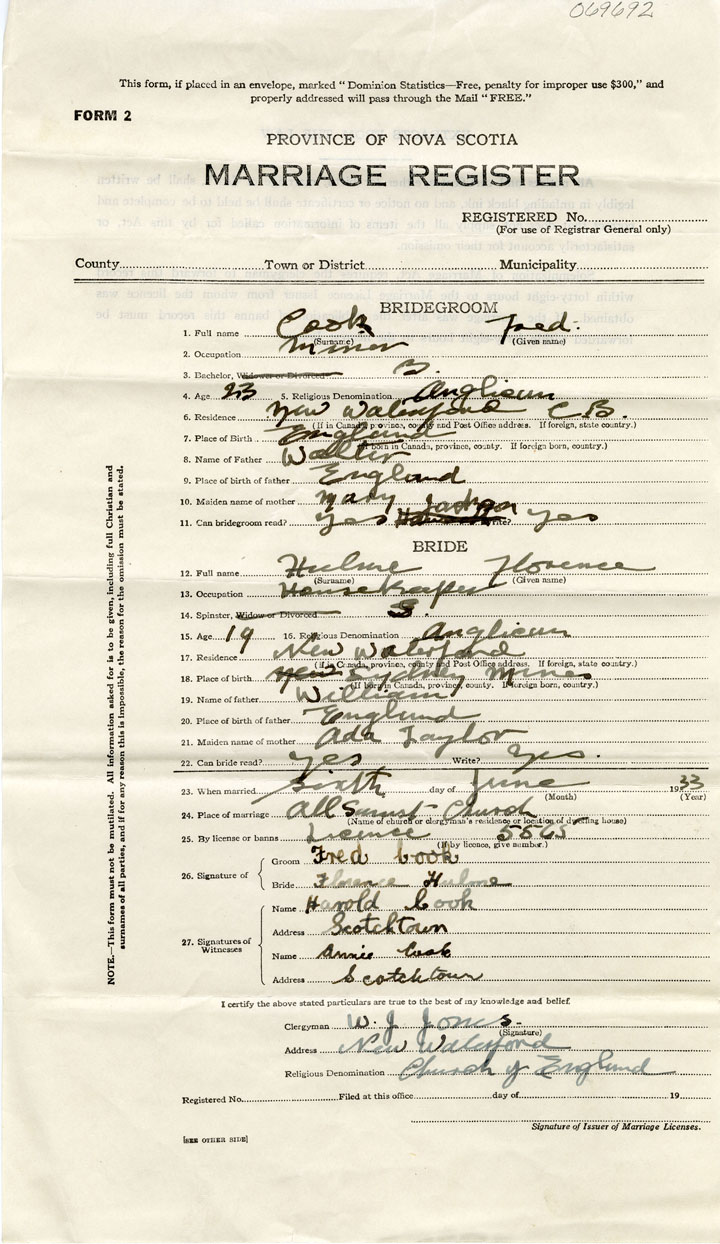 069692
This form, if placed in an envelope, marked "Dominion Statistics—Free, penalty for improper use $300," and
properly addressed will pass through the Mail "FREE."
FORM 2
PROVINCE OF NOVA SCOTIA
MARRIAGE REGISTER
REGISTERED No.
(For use of Registrar General only)
County Town or District Municipality
BRIDEGROOM
1. Full name Cook Fred.
(Surname) (Given name)
2. Occupation Miner
3. Bachelor, Widower or Divorced B.
4. Age 23 5. Religious Denomination Anglican
6. Residence New Waterford C.B.
(If in Canada, province, county and Post Office address. If foreign, state country.)
7. Place of Birth England
(If born in Canada, province, county. If foreign born, country.)
8. Name of Father Walter
9. Place of birth of father England
10. Maiden name of mother Mary Jackson
11. Can bridegroom read? Yes Write? Yes
BRIDE
12. Full name Hulme Florence
(Surname) (Given name)
13. Occupation Housekeeper
14. Spinster, Widow or Divorced S.
15. Age 19 16. Religious Denomination Anglican
17. Residence New Waterford
(If in Canada, province, county and Post Office address. If foreign, state country.)
18. Place of birth New Sydney Mines
(If born in Canada, province, county. If foreign born, country.)
19. Name of father William
20. Place of birth of father England
21. Maiden name of mother Ada Taylor
22. Can bride read? Yes Write? Yes.
23. When married Sixth day of June 1933
(Month) (Year)
24. Place of marriage All Church
(Name of church or clergyman's residence or location of dwelling house)
25. By license or banns Licence 5565
(If by licence, give number.)
26. Signature of Groom Fred Cook
Bride Florence Hulme
27. Signatures of Witnesses Name Harold Cook
Address Scotchtown
Name Annie Cook
Address Scotchtown
I certify the above stated particulars are true to the best of my knowledge and belief.
Clergyman W. J. Jones.
(Signature)
Address New Waterford
Religious Denomination Church of England
Registered No. Filed at this office day of 19
Signature of Issuer of Marriage Licenses.
[SEE OTHER SIDE]
NOTE.—This form must not be mutilated. All information asked for is to be given, including full Christian and
surnames of all parties, and if for any reason this is impossible, the reason for the omission must be stated.